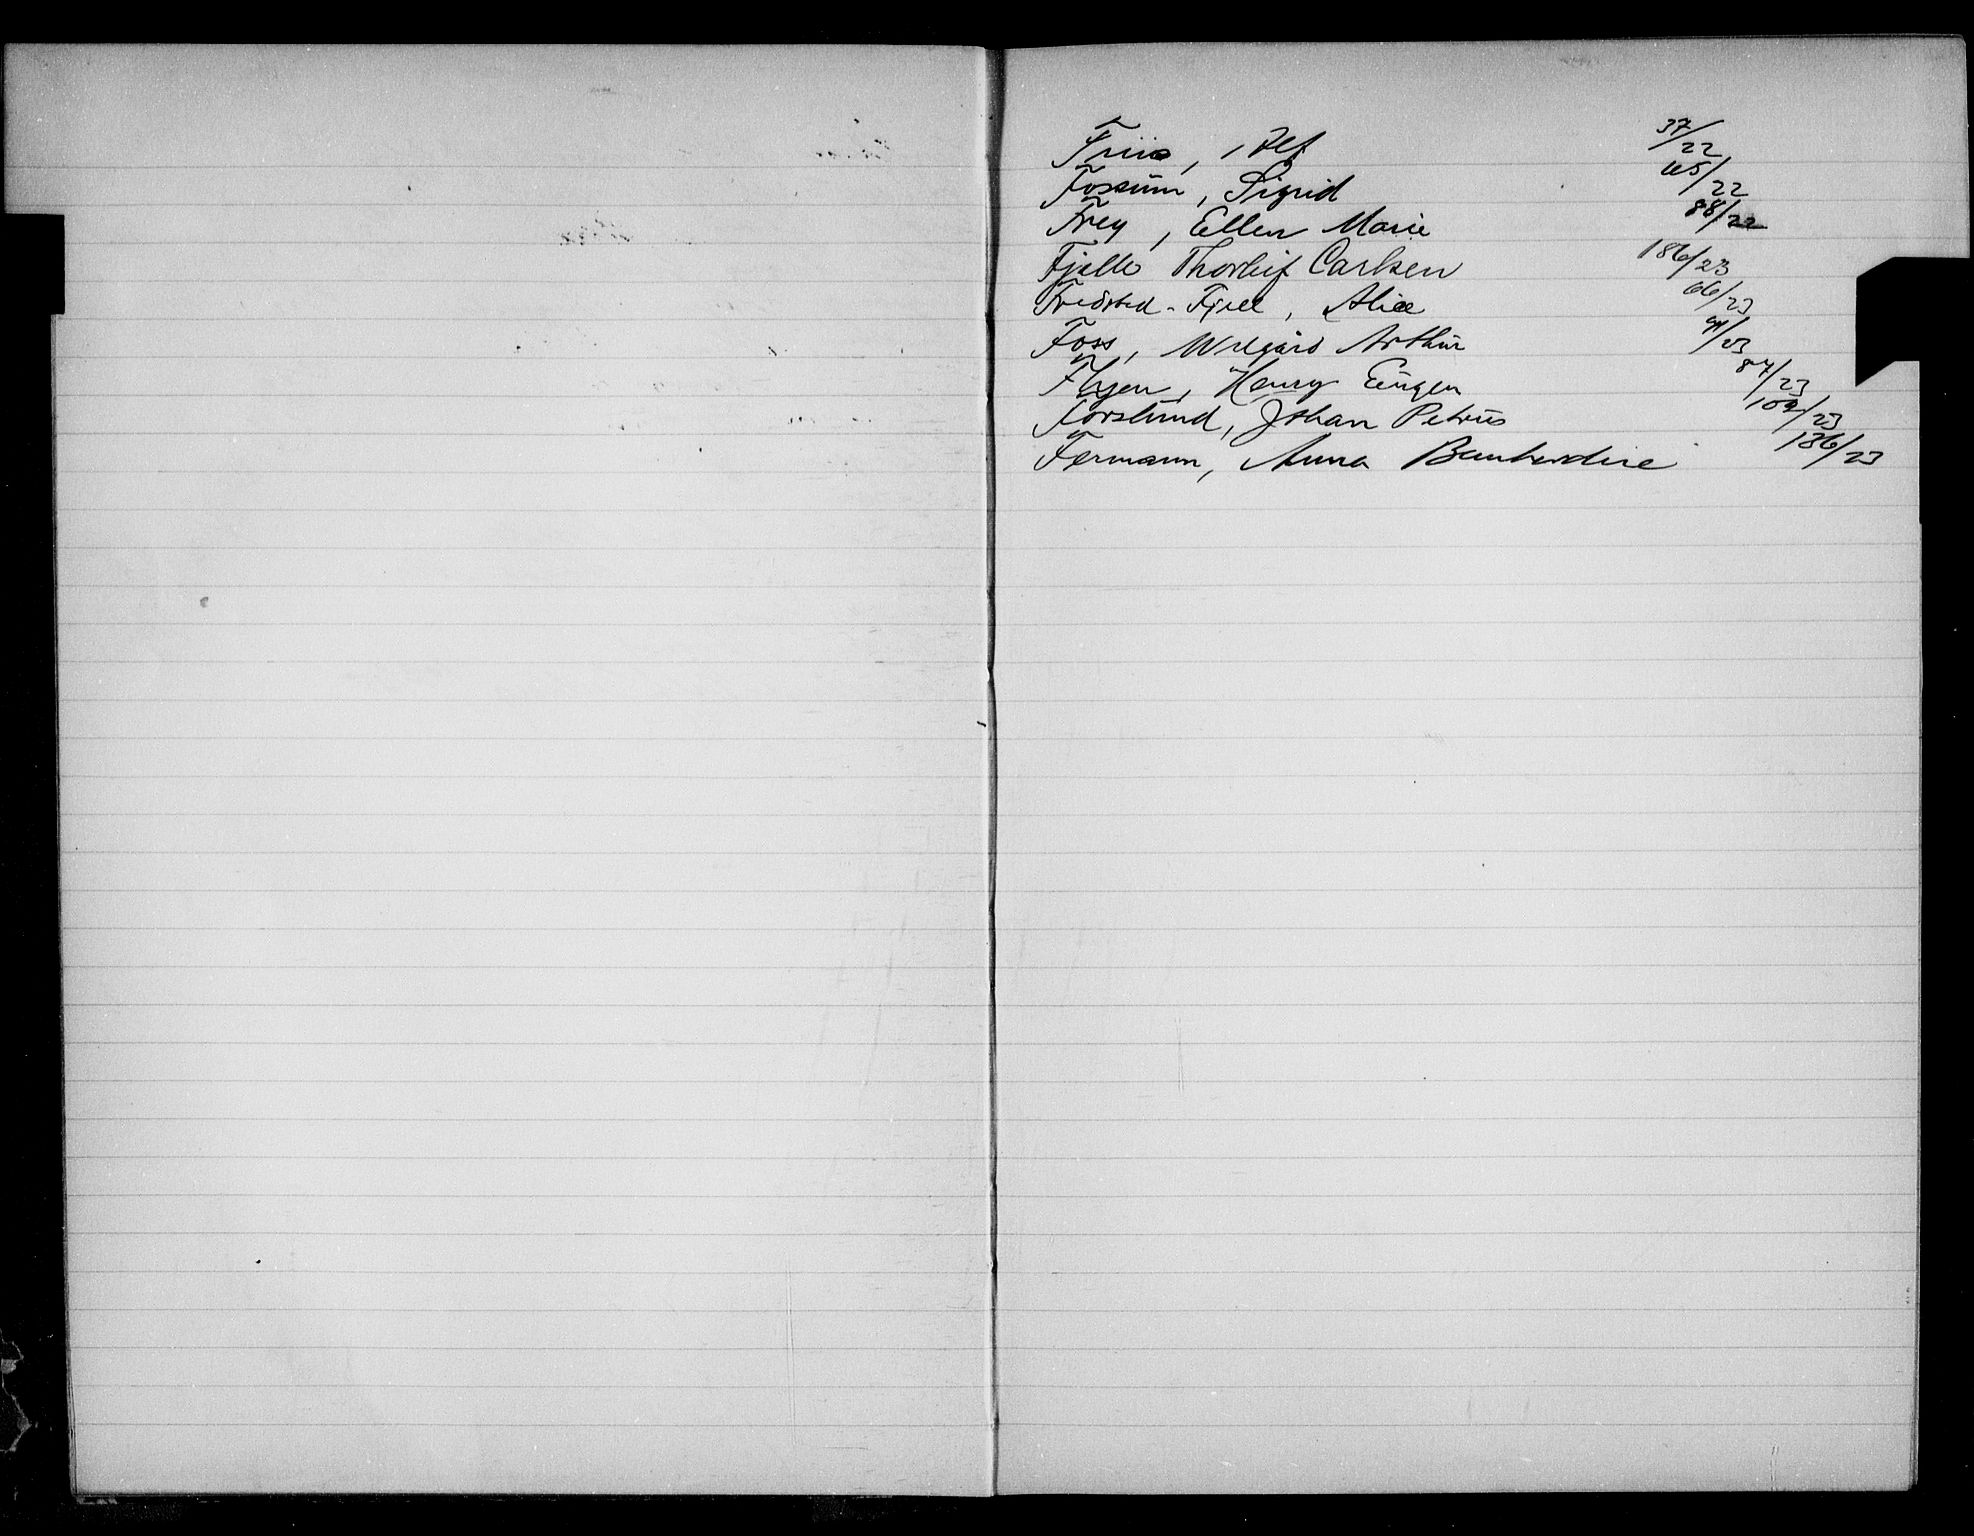 Friis, Alf 37/22
Fossum, Sigrid 65/22
Frey, Ellen Marie 88/22
Fjelle Thorleif Carlsen 186/23
Fredsted - Fjell, Alice 66/23
Foss, Arthur /23
Flygen, Henry Eugen 87/23
Forslund, Johan Petrus 102/23
Fermann, Anna 186/23